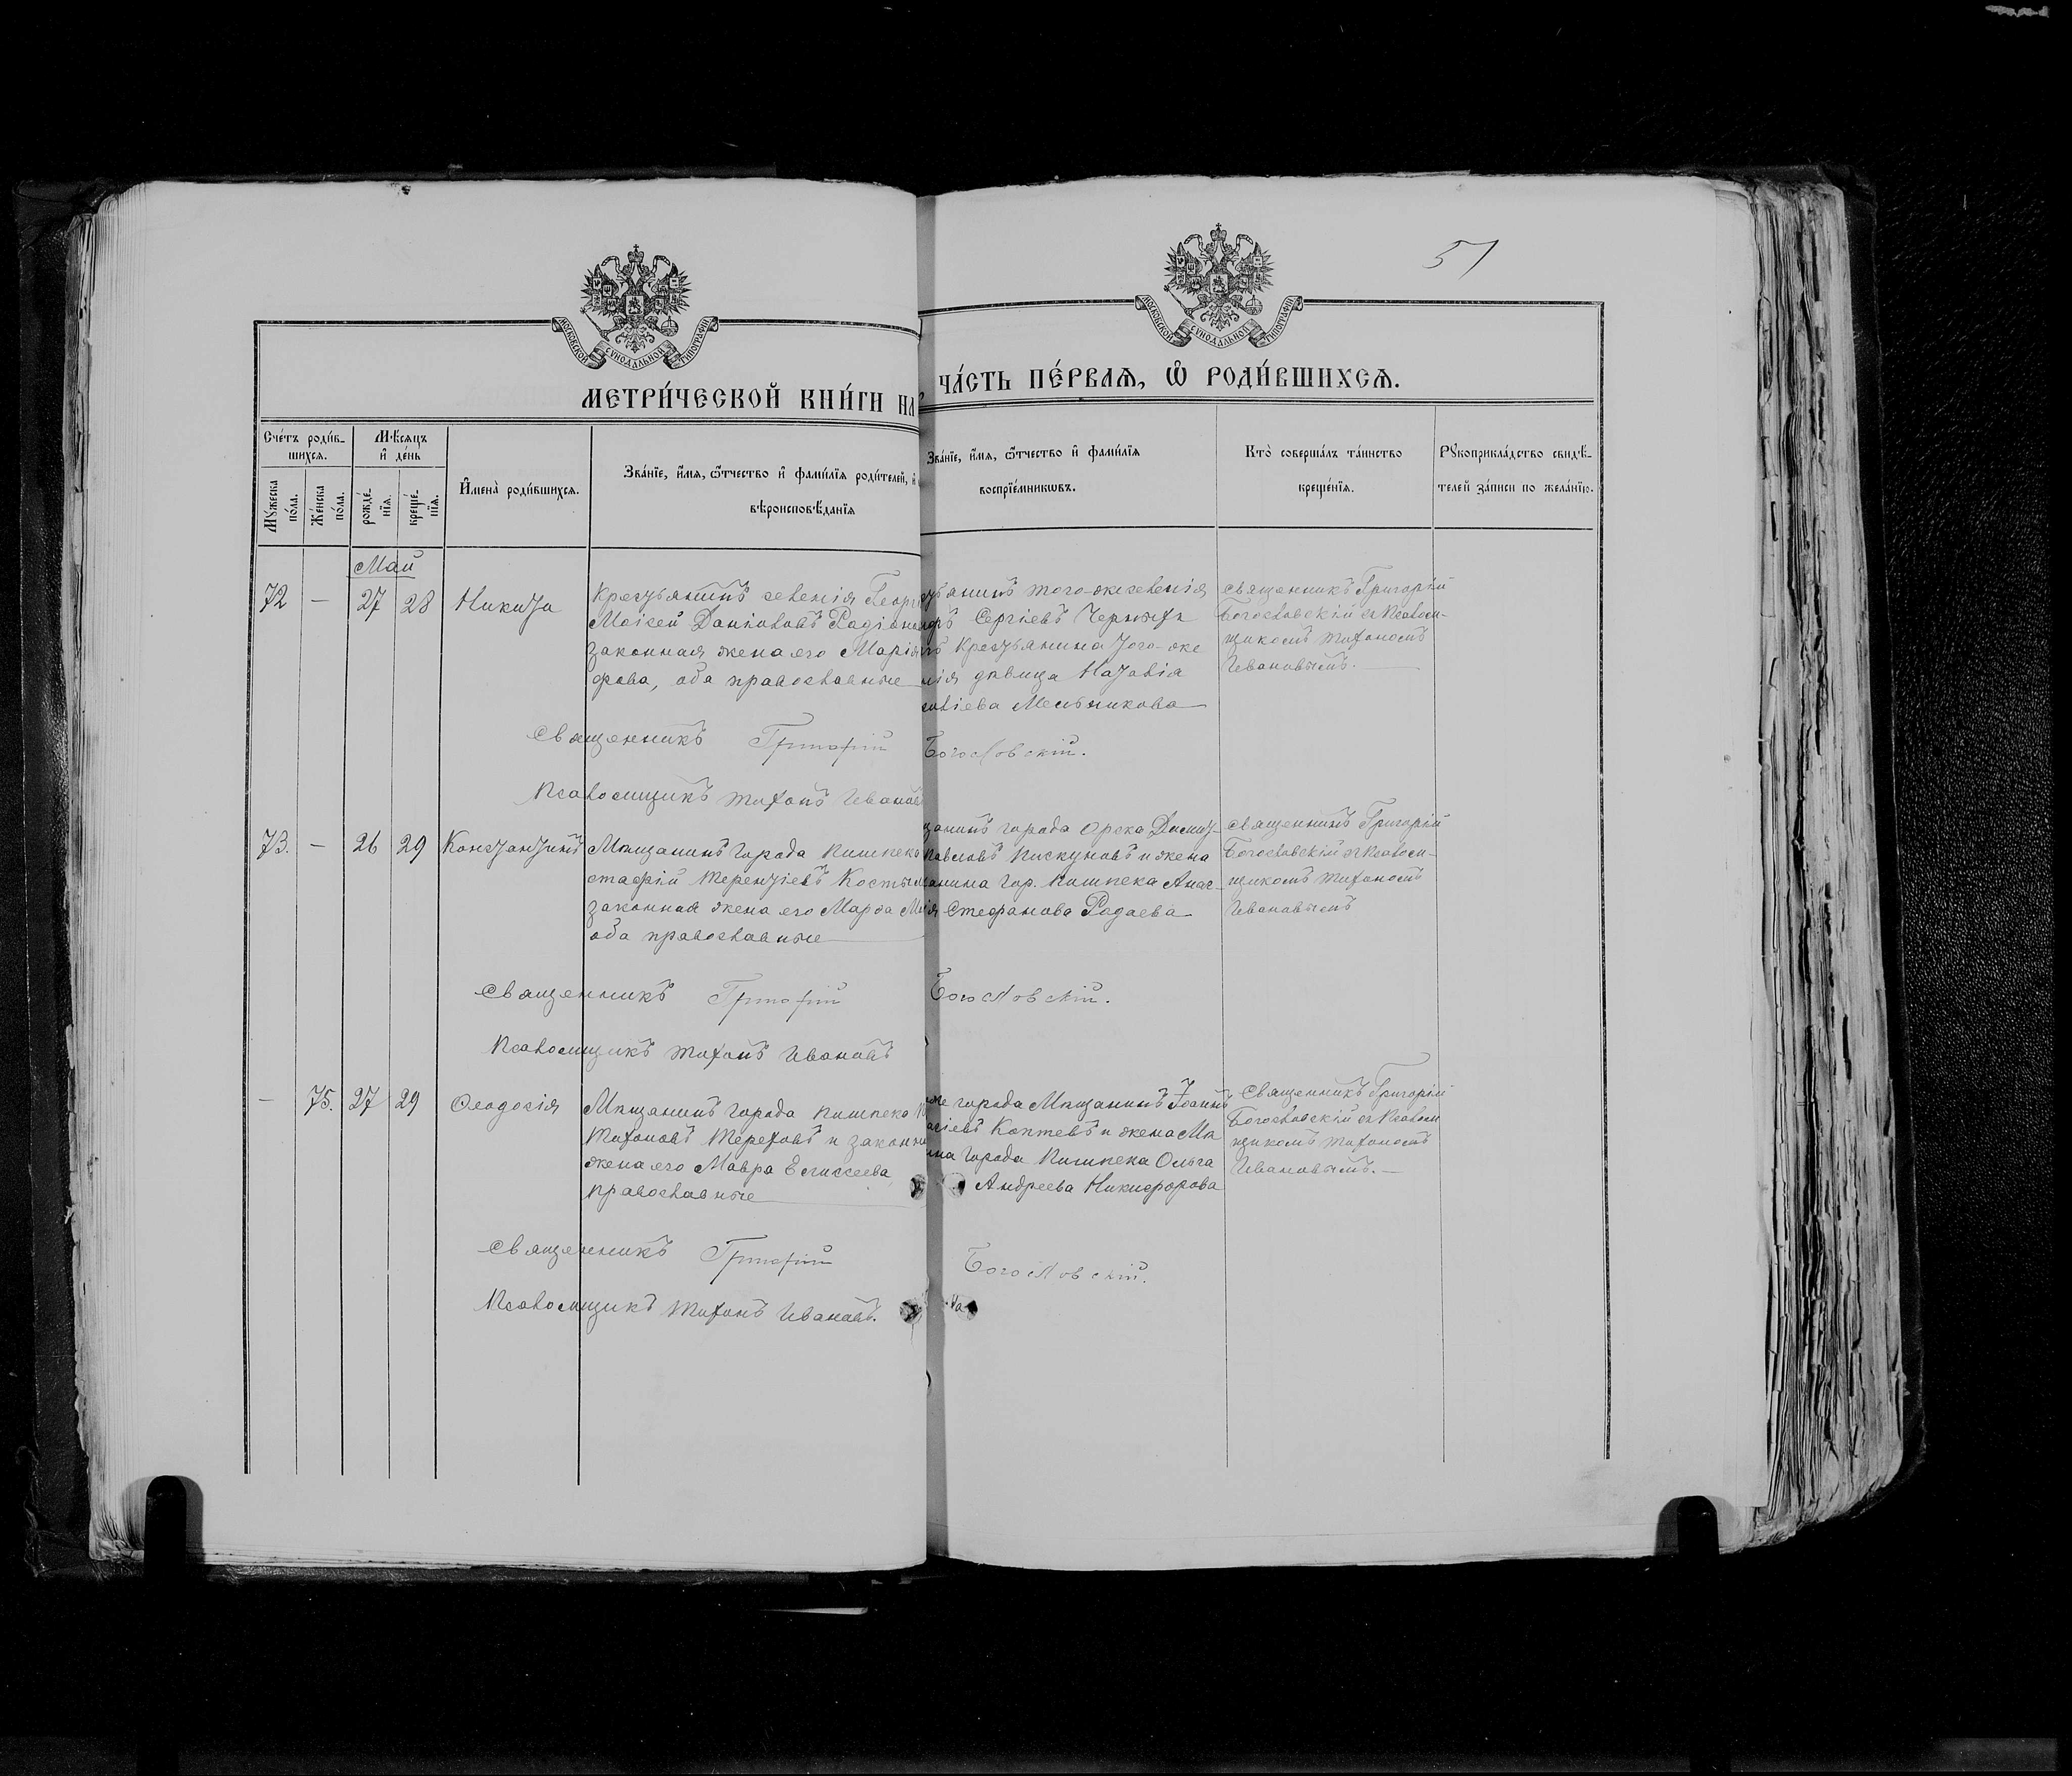 51
МОСКОВСКОЙ СУНОДАЛЬНОЙ ТИПОГРАФІИ
МОСКОВСКОЙ СУНОДАЛЬНОЙ ТИПОГРАФІИ
МЕТРИ́ЧЕСКОЙ КНИ́ГИ НА
ЧА́СТЬ ПЕ́РВАѦ, Ѡ҆ РОДИ́ВШИХСѦ.
Сче́тъ роди́в-
шихсѧ.
Мꙋ́жеска по́ла.
Же́нска по́ла.
Мѣ́сѧцъ
и҆ де́нь
рожде́-
нїѧ.
креще́-
нїѧ.
И҆мена̀ роди́вшихсѧ.
Зва́нїе, и҆́мѧ, ѻ҆́тчество и҆ фами́лїѧ роди́телей, и҆
вѣроисповѣ́данїѧ
Зва́нїе, и҆́мѧ, ѻ҆́тчество и҆ фами́лїѧ
воспрїе́мникѡвъ.
Кто̀ соверша́лъ та́инство
креще́нїѧ.
Рꙋкоприкла́дство свидѣ́-
телей за́писи по жела́нїю.
Май
72 — 27 28 Никита
Крестьянинъ селенія Георг
Моісей Даніиловъ Радіоно
законная жена его Марія
фова, оба православные
тьянинъ того-же селенія
Сергіевъ Черныхъ
Крестьянина того-же
нія дѣвица Наталія
Мельникова
Священникъ Григорій
Богословскій съ Псаломщ-
щикомъ Тихономъ
Ивановымъ.
Священникъ Григорій Богословскій.
Псаломщикъ Тихонъ Ивановъ
73. — 26 29 Константинъ
Мѣщанинъ города Пишпека
стафій Терентіевъ Косты
законная жена его Марѳа М
оба православные
щанинъ города Орска Димит-
Павловъ Пискуновъ и жена
щанина гор. Пишпека Анас-
ія Стефанова Радаева
Священникъ Григорій
Богословскій съ Псалом-
щикомъ Тихономъ
Ивановымъ
Священникъ Григорій Богословскій.
Псаломщикъ Тихонъ Ивановъ
— 75. 27 29 Ѳеодосія
Мѣщанинъ города Пишпека
Тихоновъ Тереховъ и законн
жена его Мавра Елиссеева,
православные
же города Мѣщанинъ Іоаннъ
Коптевъ и жена Мѣ
нина города Пишпека Ольга
Андреева Никифорова
Священникъ Григорій
Богословскій съ Псалом
щикомъ Тихономъ
Ивановымъ.
Священникъ Григорій Богословскій.
Псаломщикъ Тихонъ Ивановъ.